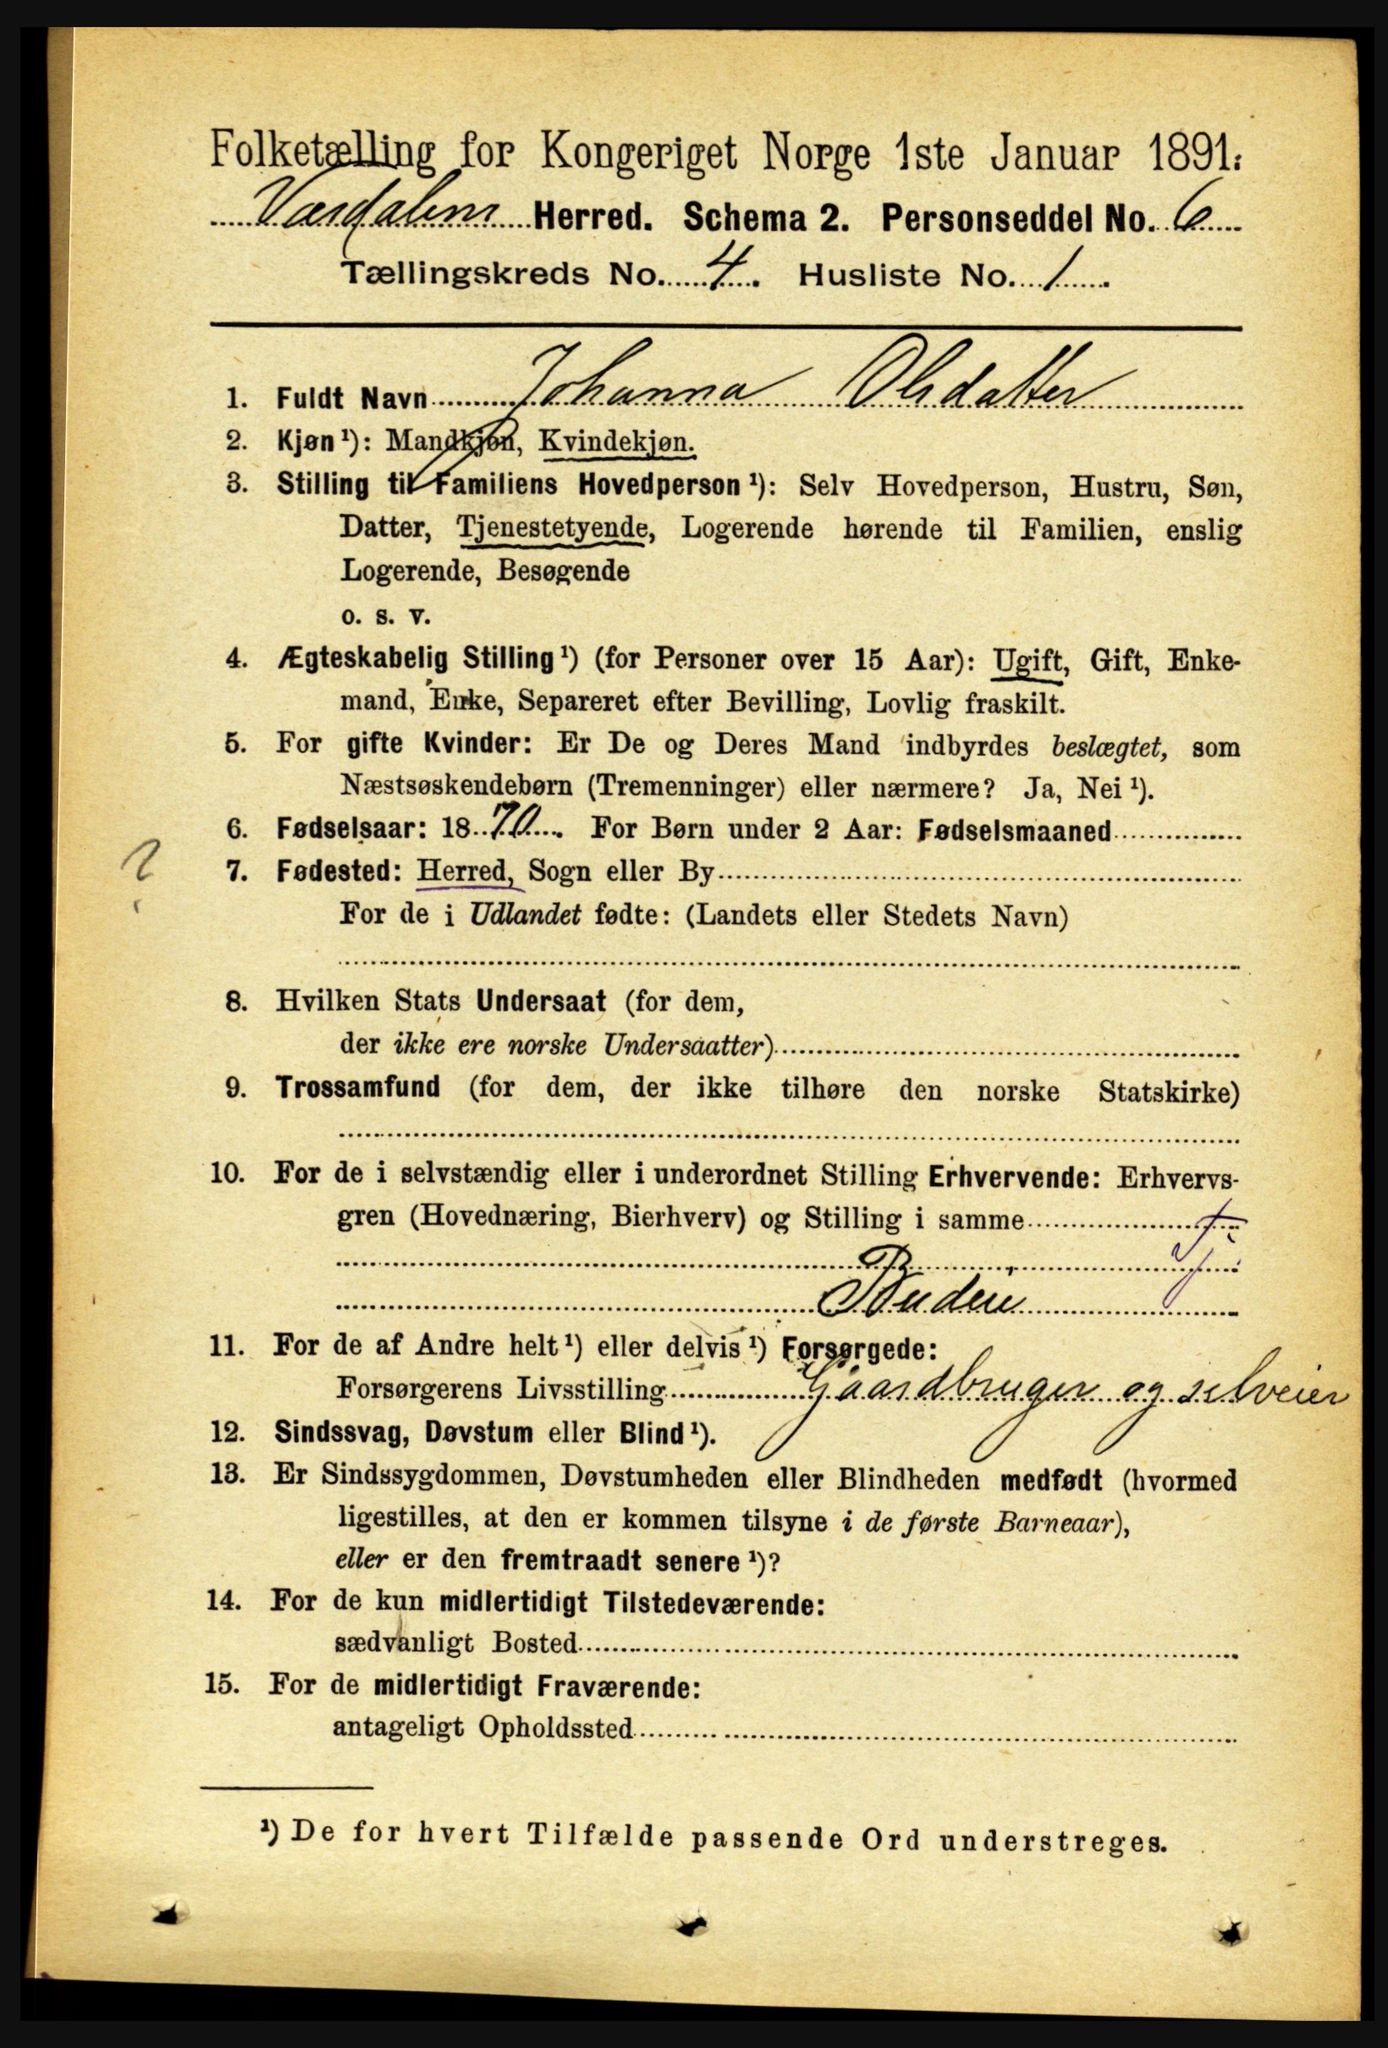 Folketælling for Kongeriget Norge 1ste Januar 1891.
Værdalens Herred. Schema 2. Personseddel No. 6
Tællingskreds No. 4. Husliste No. 1
1. Fuldt Navn Johanna Olsdatter
2. Kjøn¹): Mandkjøn, Kvindekjøn.
3. Stilling til Familiens Hovedperson¹): Selv Hovedperson, Hustru, Søn,
Datter, Tjenestetyende, Logerende hørende til Familien, enslig
Logerende, Besøgende
o. s. v.
4. Ægteskabelig Stilling¹) (for Personer over 15 Aar): Ugift, Gift, Enke-
mand, Enke, Separeret efter Bevilling, Lovlig fraskilt.
5. For gifte Kvinder: Er De og Deres Mand indbyrdes beslægtet, som
Næstsøskendebørn (Tremenninger) eller nærmere? Ja, Nei¹).
6. Fødselsaar: 1870. For Børn under 2 Aar: Fødselsmaaned
? 7. Fødested: Herred, Sogn eller By
For de i Udlandet fødte: (Landets eller Stedets Navn)
8. Hvilken Stats Undersaat (for dem,
der ikke ere norske Undersaatter)
9. Trossamfund (for dem, der ikke tilhøre den norske Statskirke)
10. For de i selvstændig eller i underordnet Stilling Erhvervende: Erhvervs-
gren (Hovednæring, Bierhverv) og Stilling i samme
Tj
Budeie
11. For de af Andre helt¹) eller delvis¹) Forsørgede:
Forsørgerens Livsstilling Gaardbruger og selveier
12. Sindssvag, Døvstum eller Blind¹).
13. Er Sindssygdommen, Døvstumheden eller Blindheden medfødt (hvormed
ligestilles, at den er kommen tilsyne i de første Barneaar),
eller er den fremtraadt senere¹)?
14. For de kun midlertidigt Tilstedeværende:
sædvanligt Bosted
15. For de midlertidigt Fraværende:
antageligt Opholdssted
¹) De for hvert Tilfælde passende Ord understreges.